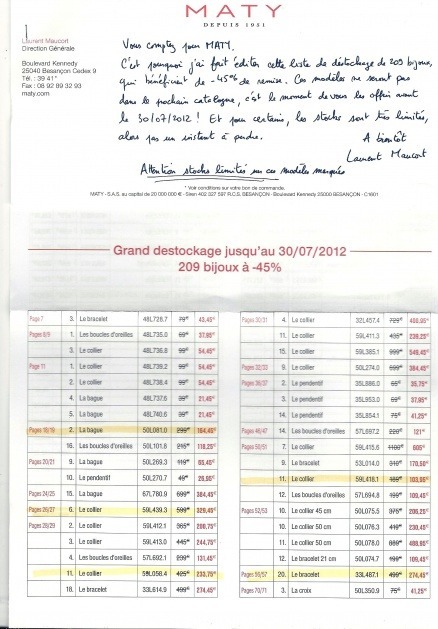 MATY
DEPUIS 1951
Laurent Maucort
Direction Générale
Boulevard Kennedy
25040 Besançon Cedex 9
Tél. : 39 41*
Fax : 08 92 89 32 93
maty.com
Vous comptez pour MATY.
C'est pourquoi j'ai fait éditer cette liste de déstockage de 209 bijoux,
qui bénéficient de -45% de remise. Ces modèles ne seront pas
dans le prochain catalogue, c'est le moment de vous les offrir avant
le 30/07/2012 ! Et pour certains, les stocks sont très limités,
alors pas un instant à perdre.
A bientôt
Laurent Maucort
Attention stocks limités sur ces modèles marqués
* Voir conditions sur votre bon de commande.
MATY - S.A.S. au capital de 20 000 000 € - Siren 402 327 597 R.C.S. BESANÇON - Boulevard Kennedy 25000 BESANÇON - C1601
Grand destockage jusqu'au 30/07/2012
209 bijoux à -45%
Page 7 3. Le bracelet 48L728.7 79€ 43,45€
Pages 8/9 1. Les boucles d'oreilles 48L735.0 69€ 37,95€
3. Le collier 48L736.8 99€ 54,45€
Page 11 1. Le collier 48L739.2 99€ 54,45€
2. Le collier 48L738.4 99€ 54,45€
4. La bague 48L737.6 39€ 21,45€
5. La bague 48L740.6 39€ 21,45€
Pages 18/19 2. La bague 50L081.0 299€ 164,45€
16. Les boucles d'oreilles 50L101.8 215€ 118,25€
Pages 20/21 9. La bague 50L269.3 119€ 65,45€
10. Le pendentif 50L270.7 49€ 26,95€
Pages 24/25 15. La bague 67L780.9 699€ 384,45€
Pages 26/27 6. Le collier 59L439.3 599€ 329,45€
Pages 28/29 2. Le collier 59L412.1 365€ 200,75€
3. Le collier 59L413.0 445€ 244,75€
4. Les boucles d'oreilles 57L692.1 239€ 131,45€
11. Le collier 59L058.4 425€ 233,75€
18. Le bracelet 33L614.9 499€ 274,45€
Pages 30/31 4. Le collier 32L457.4 729€ 400,95€
11. Le collier 59L411.3 435€ 239,25€
15. Le collier 59L385.1 999€ 549,45€
Pages 32/33 9. Le collier 50L274.0 699€ 384,45€
Pages 36/37 2. Le pendentif 35L886.0 65€ 35,75€
3. Le pendentif 35L953.0 69€ 37,95€
14. Le pendentif 35L854.1 75€ 41,25€
Pages 46/47 14. Les boucles d'oreilles 57L697.2 220€ 121€
Pages 50/51 7. Le collier 59L415.6 1100€ 605€
9. Le bracelet 53L014.0 310€ 170,50€
11. Le collier 59L418.1 189€ 103,95€
12. Les boucles d'oreilles 57L694.8 199€ 109,45€
Pages 52/53 10. Le collier 45 cm 50L075.5 375€ 206,25€
10. Le collier 50 cm 50L076.3 419€ 230,45€
11. Le collier 50 cm 50L078.0 889€ 488,95€
12. Le bracelet 21 cm 50L074.7 199€ 109,45€
Pages 56/57 20. Le bracelet 33L487.1 499€ 274,45€
Pages 70/71 3. La croix 50L350.9 75€ 41,25€